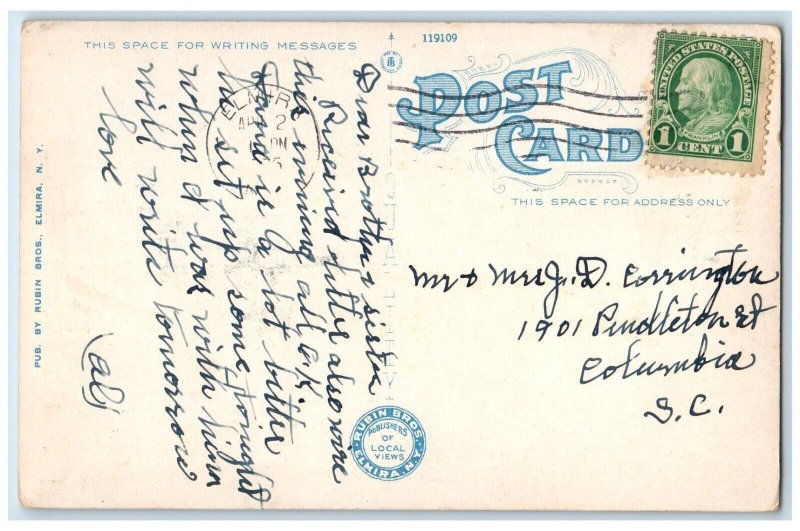 THIS SPACE FOR WRITING MESSAGES
119109
POST
CARD
UNITED STATES POSTAGE
FRANKLIN
1 CENT 1
ELMIRA
2
PM
THIS SPACE FOR ADDRESS ONLY
Dear Brother & sister
Received letter also wire
this evening all O.K.
is a lot better
he set up some tonight
when I was with him
will write tomorrow
love
(al)
Mr & Mrs J. D. Corrington
1901 Pendleton St
Columbia
S.C.
PUB. BY RUBIN BROS., ELMIRA, N. Y.
RUBIN BROS.
PUBLISHERS
OF
LOCAL
VIEWS
ELMIRA, N.Y.